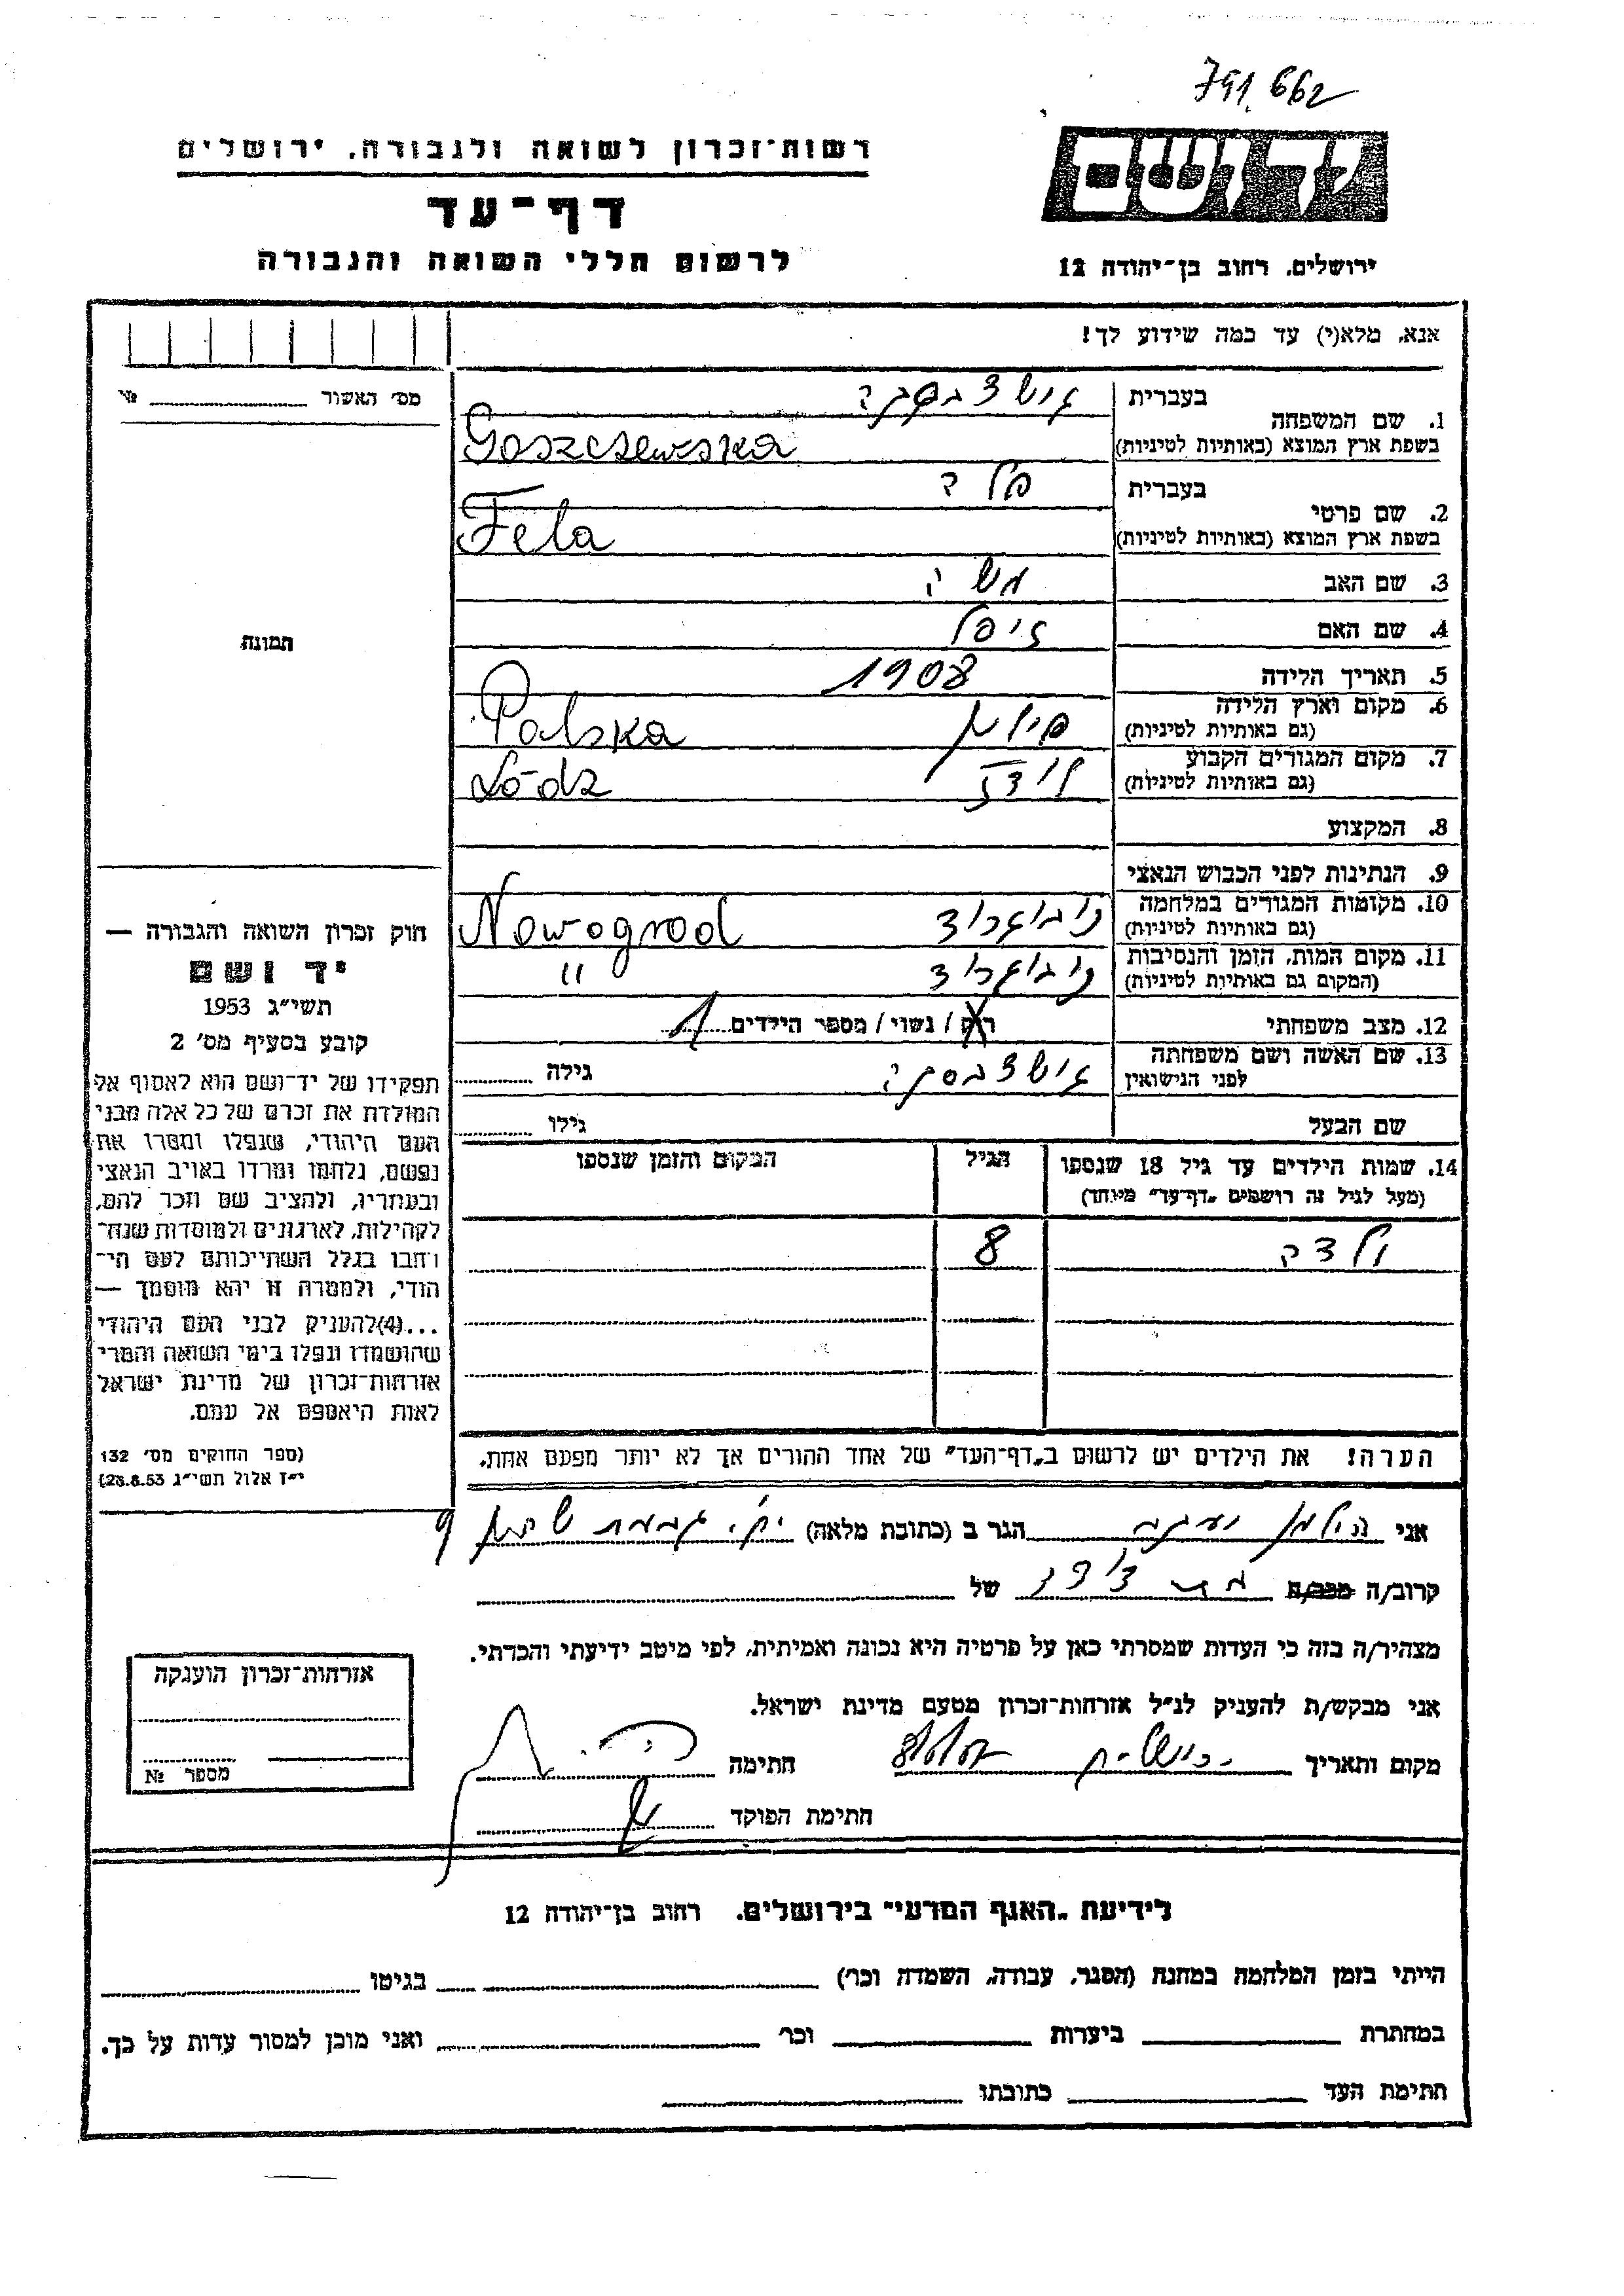 791,662
יד ושם
רשות־זכרון לשואה ולגבורה, ירושלים
דף־עד
לרשום חללי השואה והגבורה
ירושלים, רחוב בן־יהודה 12
אנא, מלא(י) עד כמה שידוע לך!
מס׳ האשור №
1. שם המשפחה
בעברית
בשפת ארץ המוצא (באותיות לטיניות) Goszczewska
2. שם פרטי
בעברית פלה
בשפת ארץ המוצא (באותיות לטיניות) Fela
3. שם האב משה
4. שם האם
5. תאריך הלידה 1908
6. מקום וארץ הלידה
(גם באותיות לטיניות) פולין Polska
7. מקום המגורים הקבוע
(גם באותיות לטיניות) לודז Lódz
8. המקצוע
9. הנתינות לפני הכבוש הנאצי
10. מקומות המגורים במלחמה
(גם באותיות לטיניות) נובוגרוד Nowogrod
11. מקום המות, הזמן והנסיבות
(המקום גם באותיות לטיניות) נובוגרוד "
12. מצב משפחתי רוק / נשוי / מספר הילדים 1
13. שם האשה ושם משפחתה
לפני הנישואין גילה
שם הבעל גילו
14. שמות הילדים עד גיל 18 שנספו
(מעל לגיל זה רושמים „דף־עד״ מיוחד)
הגיל
המקום והזמן שנספו
8
הערה! את הילדים יש לרשום ב„דף־העד״ של אחד ההורים אך לא יותר מפעם אחת.
תמונה
חוק זכרון השואה והגבורה —
יד ושם
תשי״ג 1953
קובע בסעיף מס׳ 2
תפקידו של יד־ושם הוא לאסוף אל
המולדת את זכרם של כל אלה מבני
העם היהודי, שנפלו ומסרו את
נפשם, נלחמו ומרדו באויב הנאצי
ובעוזריו, ולהציב שם וזכר להם,
לקהילות, לארגונים ולמוסדות שנח־
רבו בגלל השתייכותם לעם הי־
הודי, ולמטרה זו יהא מוסמך —
...(4)להעניק לבני העם היהודי
שהושמדו ונפלו בימי השואה והמרי
אזרחות־זכרון של מדינת ישראל
לאות היאספם אל עמם.
(ספר החוקים מס׳ 132
י״ז אלול תשי״ג 28.8.53)
אני הגר ב (כתובת מלאה)
קרוב/ה מכר/ה של
מצהיר/ה בזה כי העדות שמסרתי כאן על פרטיה היא נכונה ואמיתית, לפי מיטב ידיעתי והכרתי.
אני מבקש/ת להעניק לנ״ל אזרחות־זכרון מטעם מדינת ישראל.
מקום ותאריך ירושלים חתימה
חתימת הפוקד
אזרחות־זכרון הוענקה
מספר №
לידיעת „האגף המדעי״ בירושלים, רחוב בן־יהודה 12
הייתי בזמן המלחמה במחנה (הסגר, עבודה, השמדה וכו׳) בגיטו
במחתרת ביערות וכו׳ ואני מוכן למסור עדות על כך.
חתימת העד כתובתו